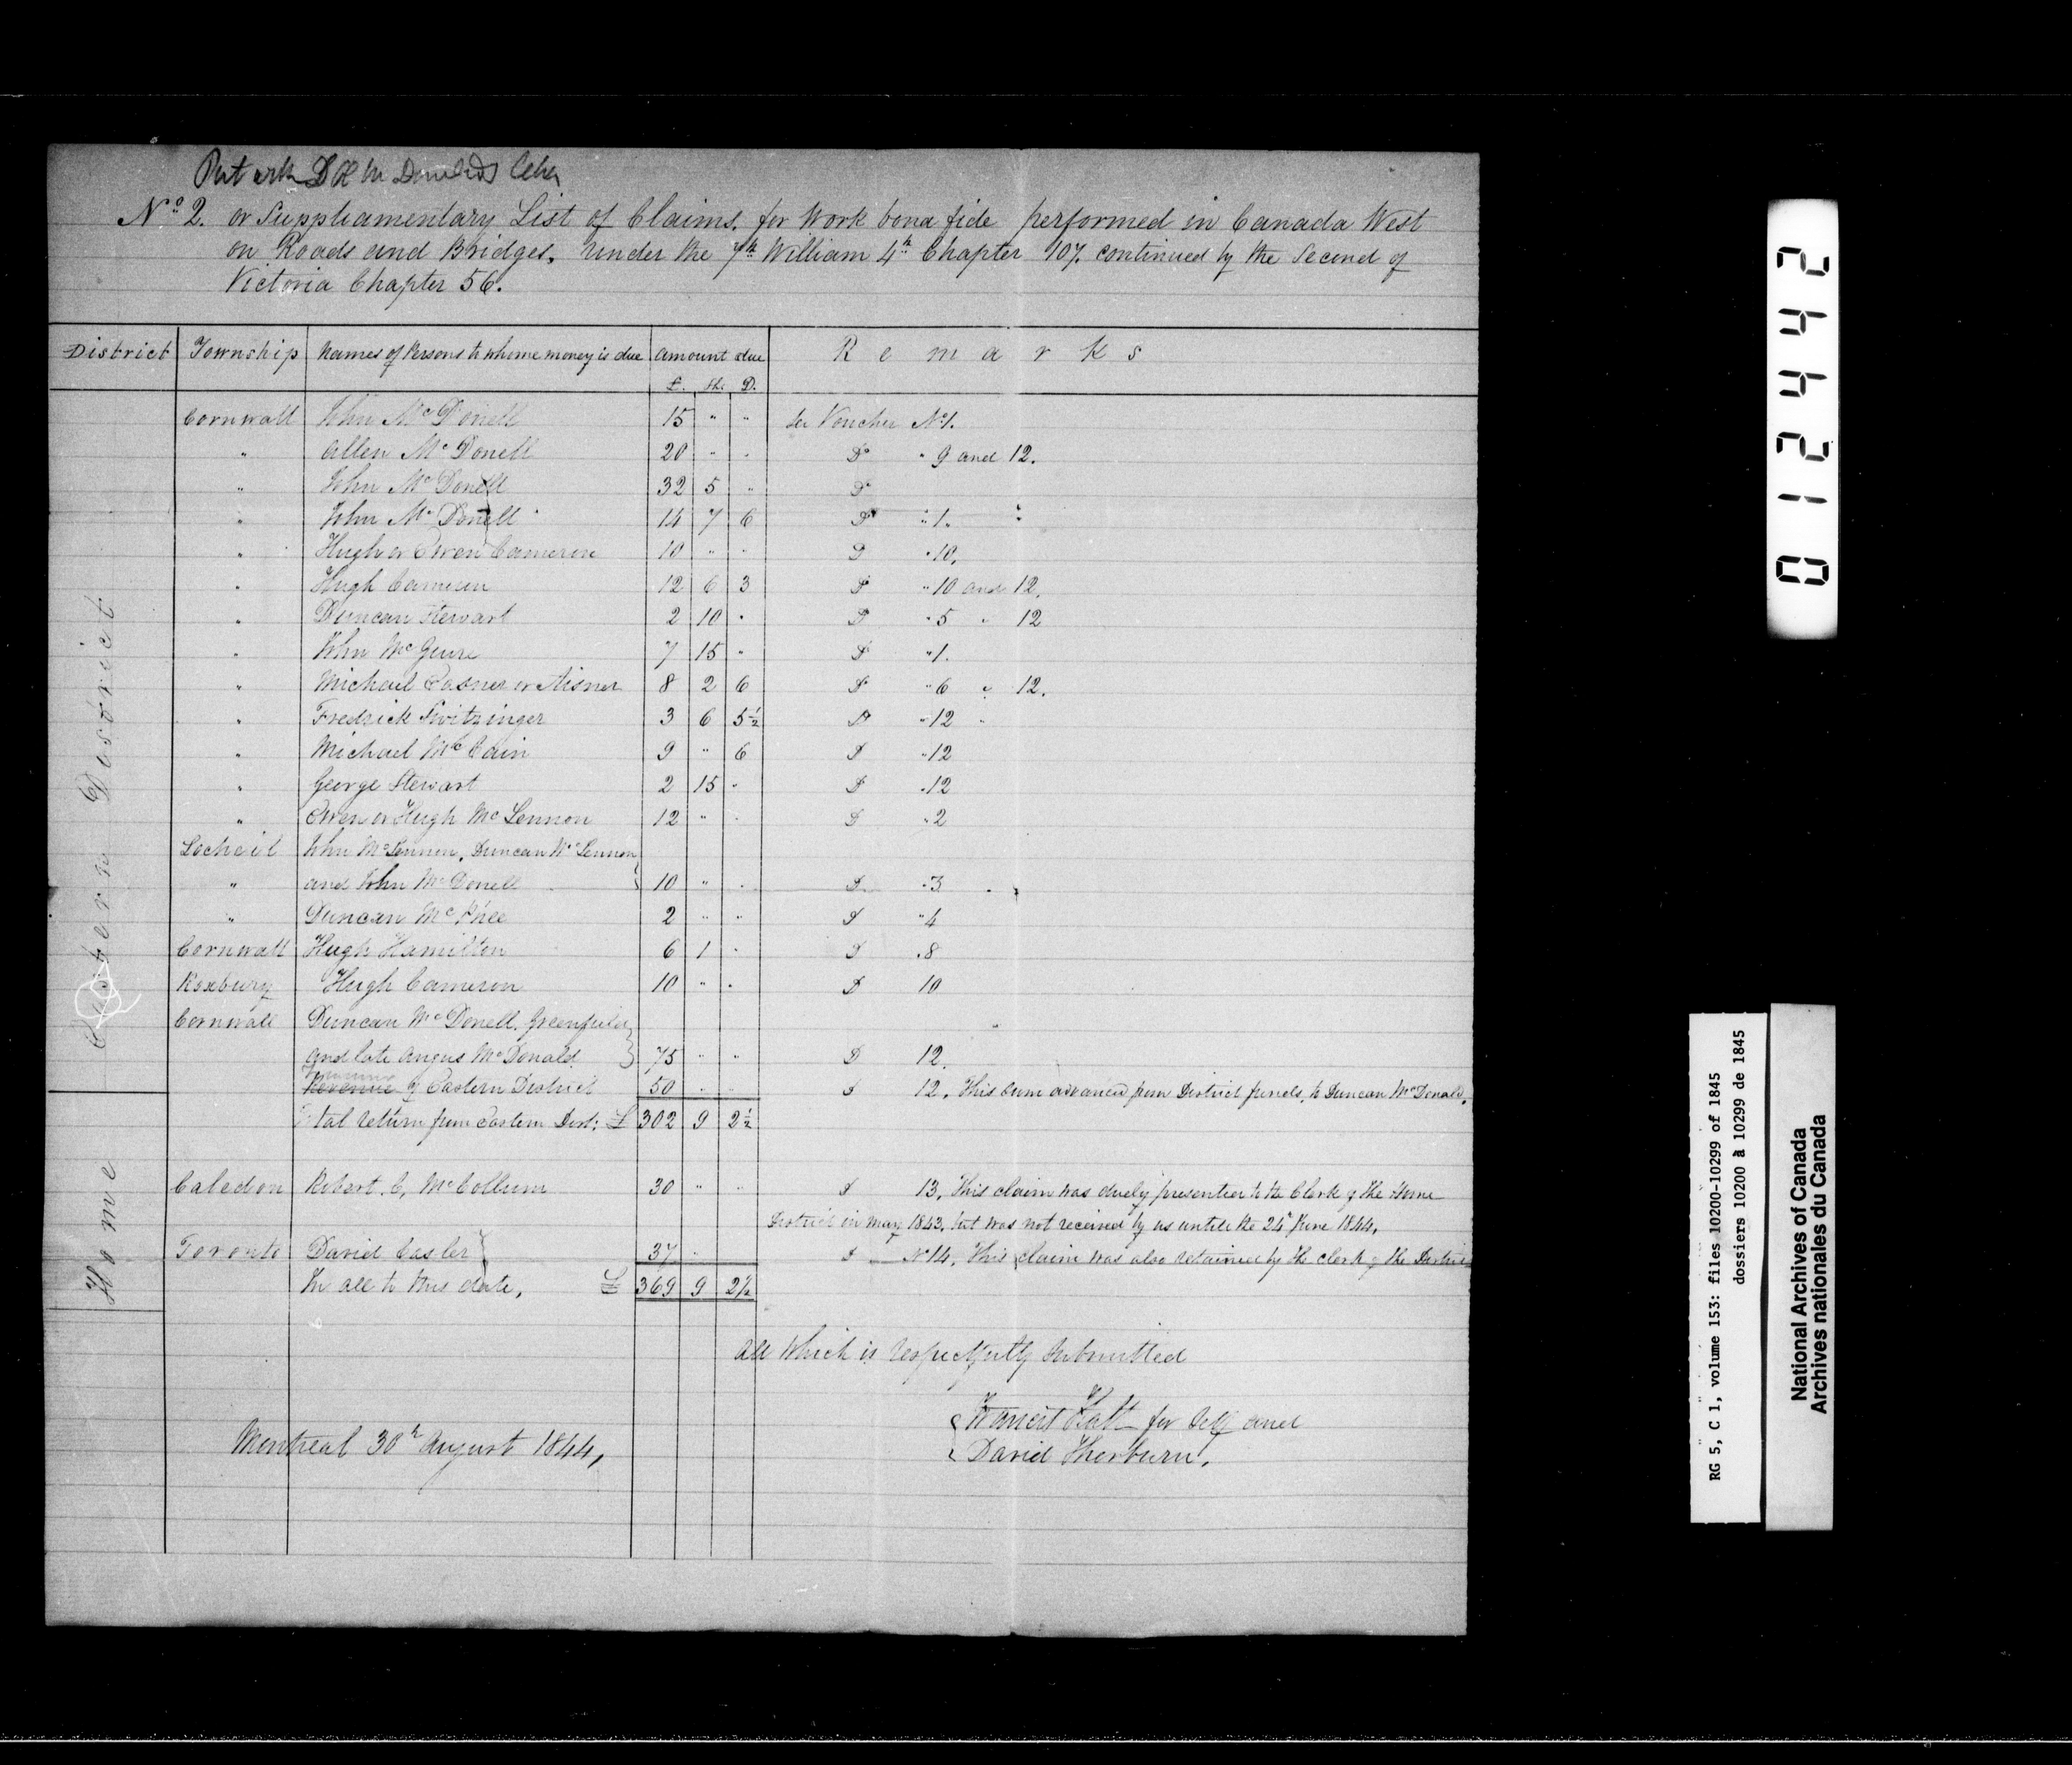 Put with D Æ McDonalds Claim
No. 2. or Suppliamentary List of Claims, for Work bona fide performed in Canada West
on Roads and Bridges, under the 7th William 4th Chapter 107, continued by the Second of
Victoria Chapter 56.
District Township Names of Persons to whome money is due amount due Remarks
£. Sh. D.
Eastern District
Cornwall John McDonell 15 " " See Voucher No 1.
" Allen McDonell 20 " " Do " 9 and 12.
" John McDonell 32 5 " Do
" John McDonell 14 7 6 Do " 1.
" Hugh or Ewen Cameron 10 " " Do " 10,
" Hugh Cameron 12 6 3 Do " 10 and 12.
" Duncan Stewart 2 10 " Do " 5 " 12
" John McGuire 7 15 " Do " 1.
" Michael Easner or Aisner 8 2 6 Do " 6 " 12.
" Fredrick Switzinger 3 6 5½ Do " 12 "
" Michael McCain 9 " 6 Do " 12
" George Stewart 2 15 " Do " 12
" Ewen or Hugh McLennon 12 " " Do " 2
Locheil John McLennon, Duncan McLennon
" and John McDonell 10 " " Do " 3
" Duncan McPhee 2 " " Do " 4
Cornwall Hugh Hamilton 6 1 " Do " 8
Roxburg Hugh Cameron 10 " " Do 10
Cornwall Duncan McDonell, Greenfield
and late Angus McDonald 75 " " Do 12.
Revenue of Eastern District 50 " " Do 12. This sum advanced from District funds, to Duncan McDonald.
Total return from Eastern Dist: £ 302 9 2½
Home
Caledon Robert. C, McCollum 30 " " Do 13. This claim was duely presented to the Clerk of the Home
District in May 1843, but was not received by us untill the 24th June 1844,
Toronto David Casler 37 " Do No 14. This claim was also retained by the clerk of the District
In all to this date, £ 369 9 2½
All Which is respectfully submitted
for Self and
David Thorburn.
Montreal 30th August 1844,
24421 0
RG 5, C 1, volume 153: files 10200-10299 of 1845
dossiers 10200 à 10299 de 1845
National Archives of Canada
Archives nationales du Canada